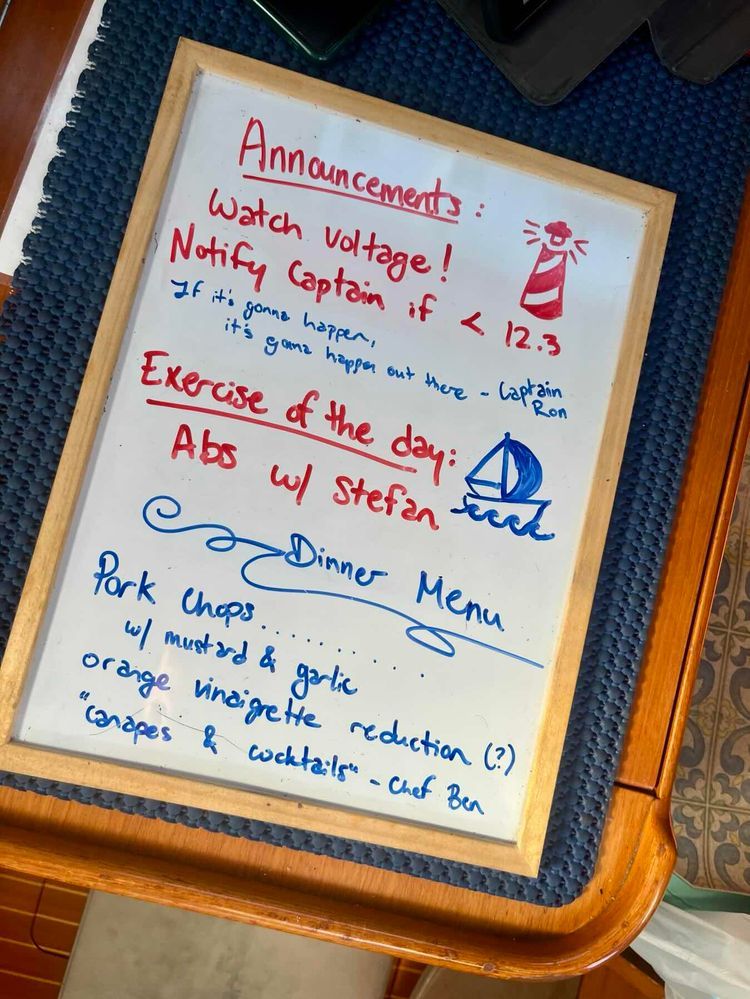 Announcements:
Watch Voltage!
Notify Captain if < 12.3
If it's gonna happen,
it's gonna happen out there - Captain
Ron
Exercise of the day:
Abs w/ Stefan
Dinner Menu
Pork Chops...........
w/ mustard & garlic
orange vinaigrette reduction (?)
"canapes & cocktails" - Chef Ben